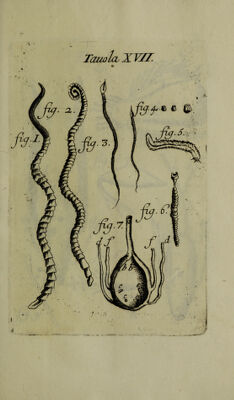 Tauola XVII.
fig. 1.
fig. 2.
fig. 3.
fig. 4.
fig. 5.
fig. 6.
fig. 7.
d f
f d